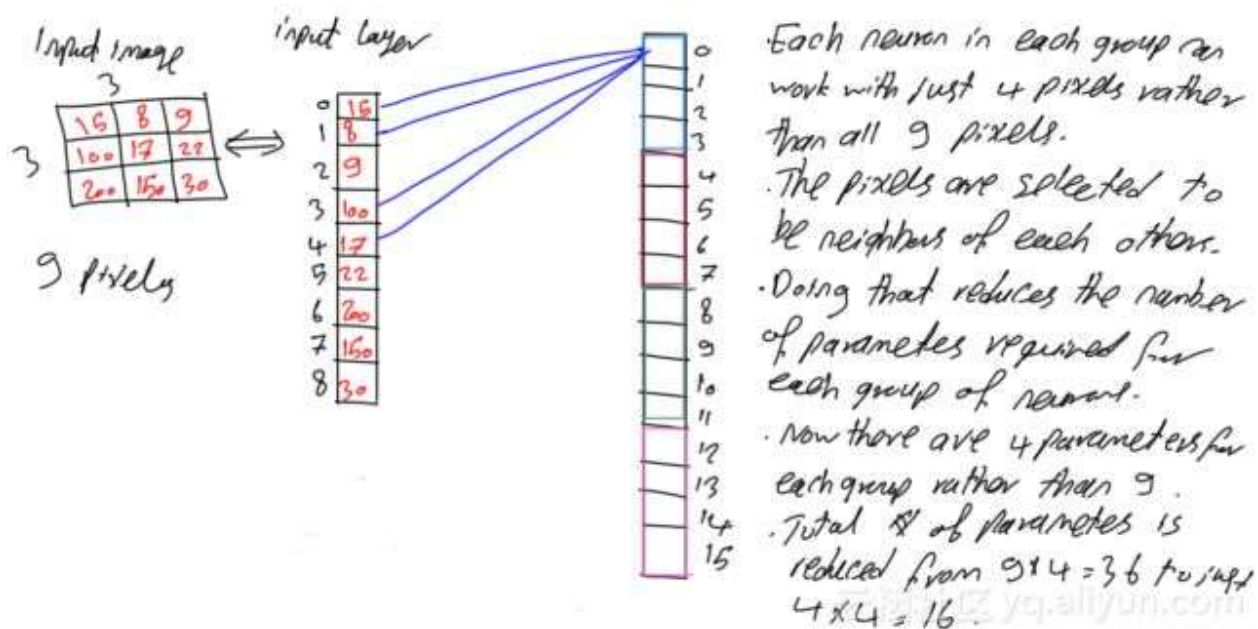 Input image
3
3
15 8 9
100 17 22
200 150 30
9 pixels
input layer
0 15
1 8
2 9
3 100
4 17
5 22
6 200
7 150
8 30
0
1
2
3
4
5
6
7
8
9
10
11
12
13
14
15
.Each neuron in each group can
work with just 4 pixels rather
than all 9 pixels.
.The pixels are selected to
be neighbors of each others.
.Doing that reduces the number
of parametes required for
each group of neurons.
.Now there are 4 parameters for
each group rather than 9.
.Total # of parametes is
reduced from 9*4=36 to just
4x4=16.
yq.aliyun.com